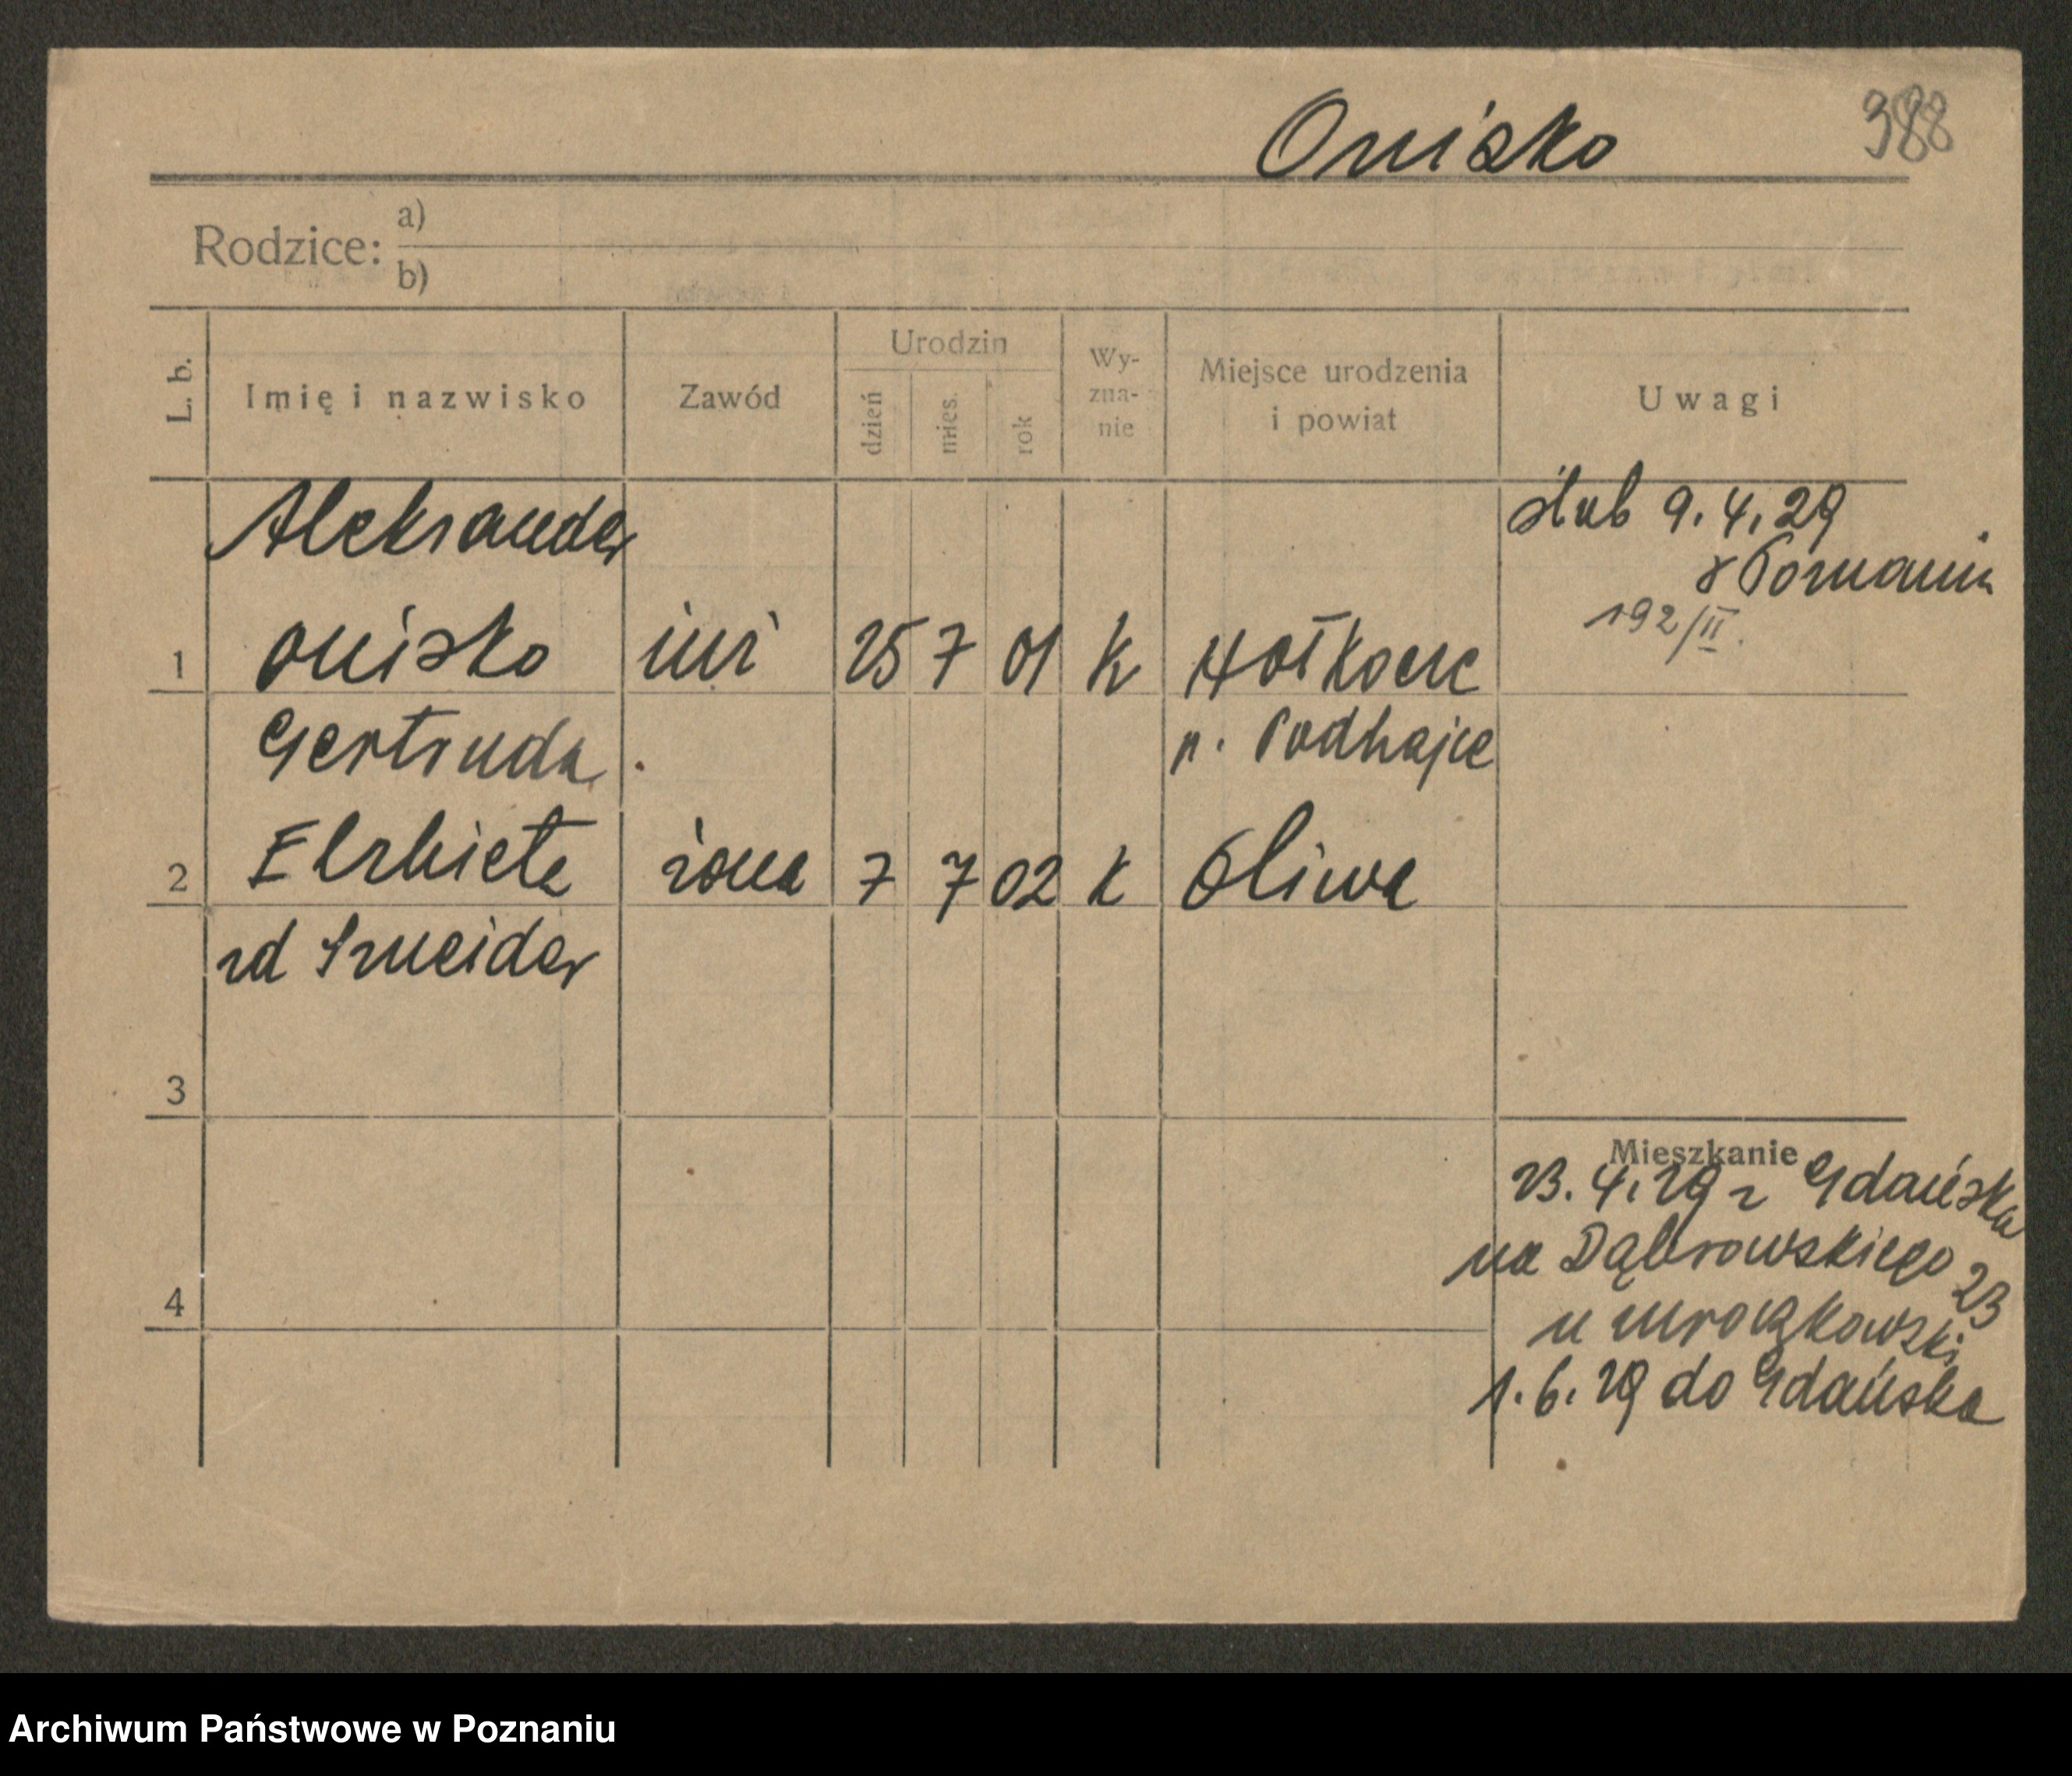 Onisko 388
Rodzice: a)
b)
L. b. Imię i nazwisko Zawód Urodzin dzień mies. rok Wy-zna-nie Miejsce urodzenia i powiat Uwagi
Aleksander ślub 9.4.29
w Poznaniu
192/II.
1 Onisko inż 25 7 01 k Hołkocze
Gertruda p. Podhajce
2 Elżbieta żona 7 7 02 k Oliwa
zd Szneider
3
Mieszkanie
23.4.29 z Gdańska
na Dąbrowskiego 23
4
u Mroczkowski
1.6.29 do Gdańska
Archiwum Państwowe w Poznaniu